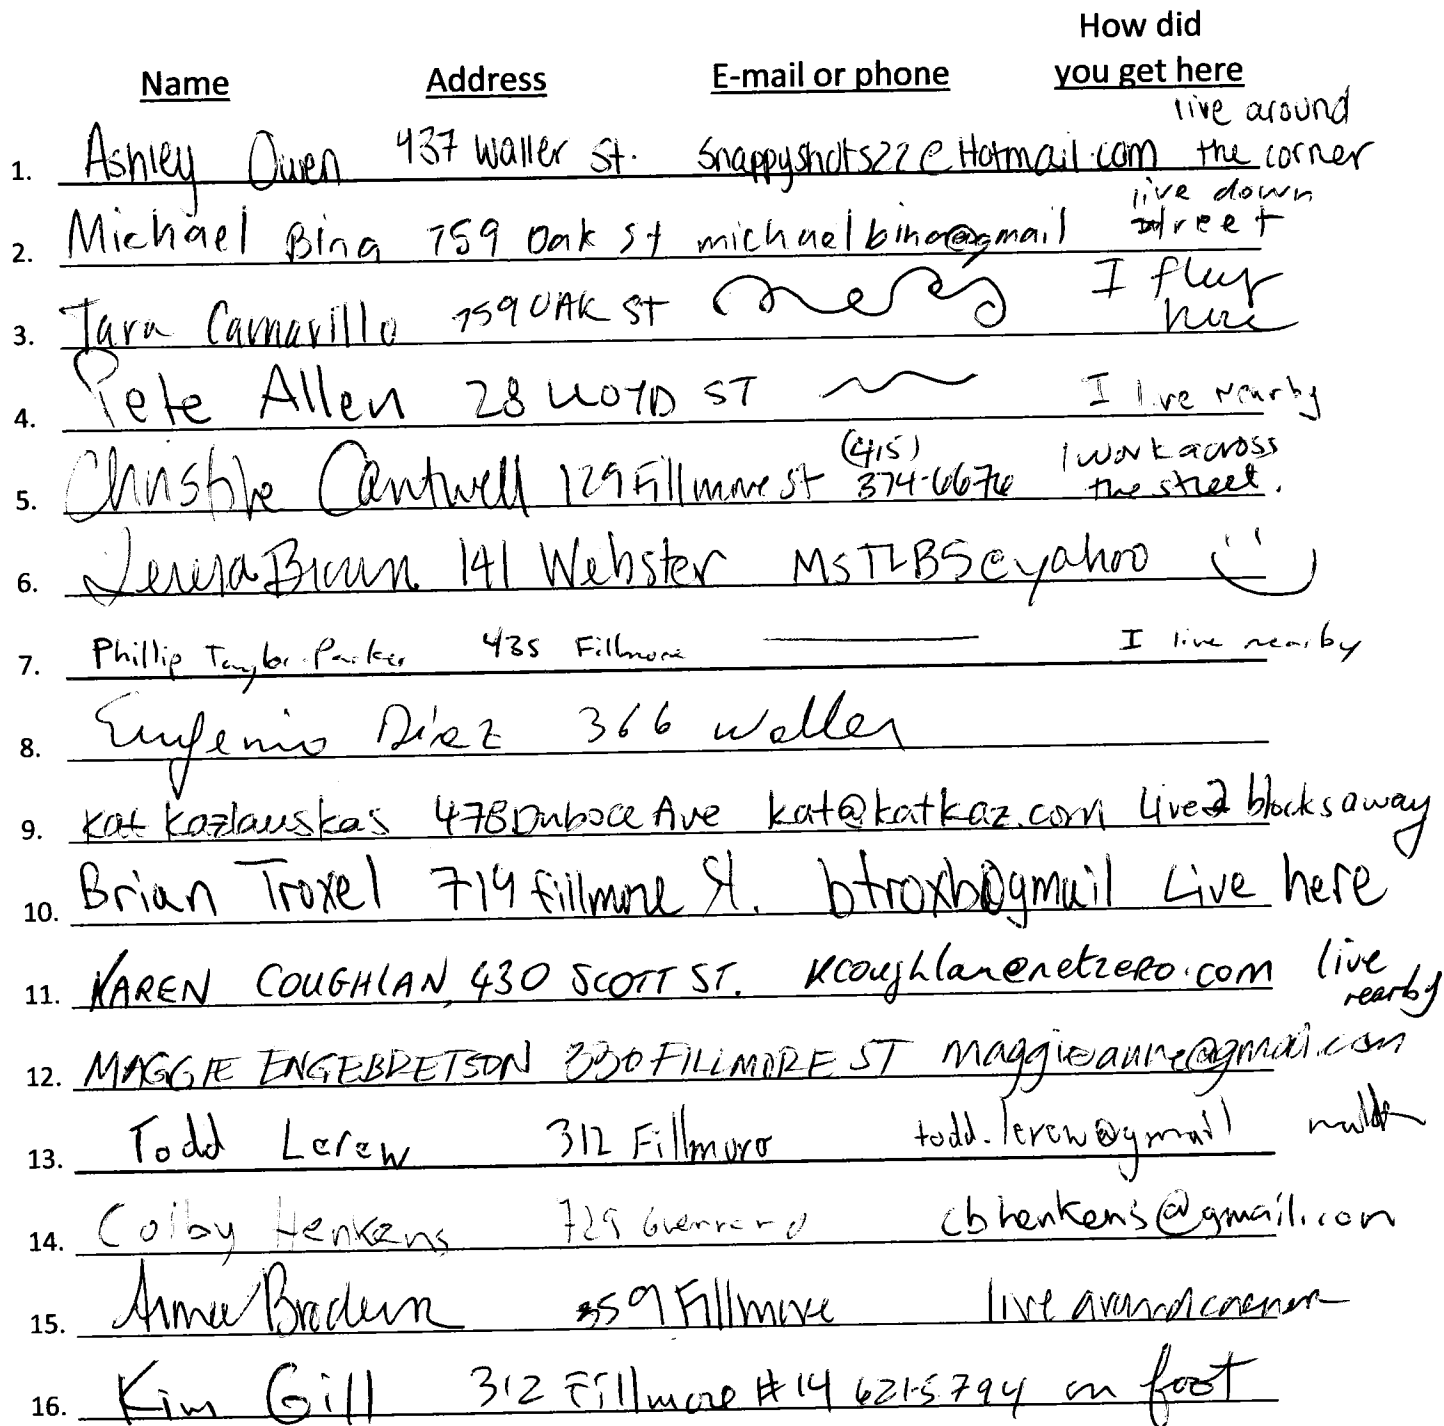 How did
Name Address E-mail or phone you get here
live around
1. Ashley Owen 437 Waller St. snappyshots22@Hotmail.com the corner
live down
2. Michael Bina 759 Oak St michaelbina@gmail street
3. Tara Camarillo 759 OAK ST I flew
here
4. Pete Allen 28 LLOYD ST I live nearby
5. Christine Cantwell 129 Fillmore St (415) 374-6676 I work across
the street.
6. Teresa Brown 141 Webster MsTLB5@yahoo
7. Phillip Taylor-Parker 435 Fillmore I live nearby
8. Eugenio Diaz 366 Waller
9. Kat Kazlauskas 478 Duboce Ave kat@katkaz.com Live 2 blocks away
10. Brian Troxel 719 Fillmore St. btroxb@gmail Live here
11. KAREN COUGHLAN, 430 SCOTT ST. kcoughlan@netzero.com live
nearby
12. MAGGIE ENGEBRETSON 330 FILLMORE ST maggieanne@gmail.com
13. Todd Lerew 312 Fillmore todd.lerew@gmail
14. Colby Henkens 729 Guerrero cbhenkens@gmail.com
15. 359 Fillmore live around corner
16. Kim Gill 312 Fillmore #14 621-5794 on foot